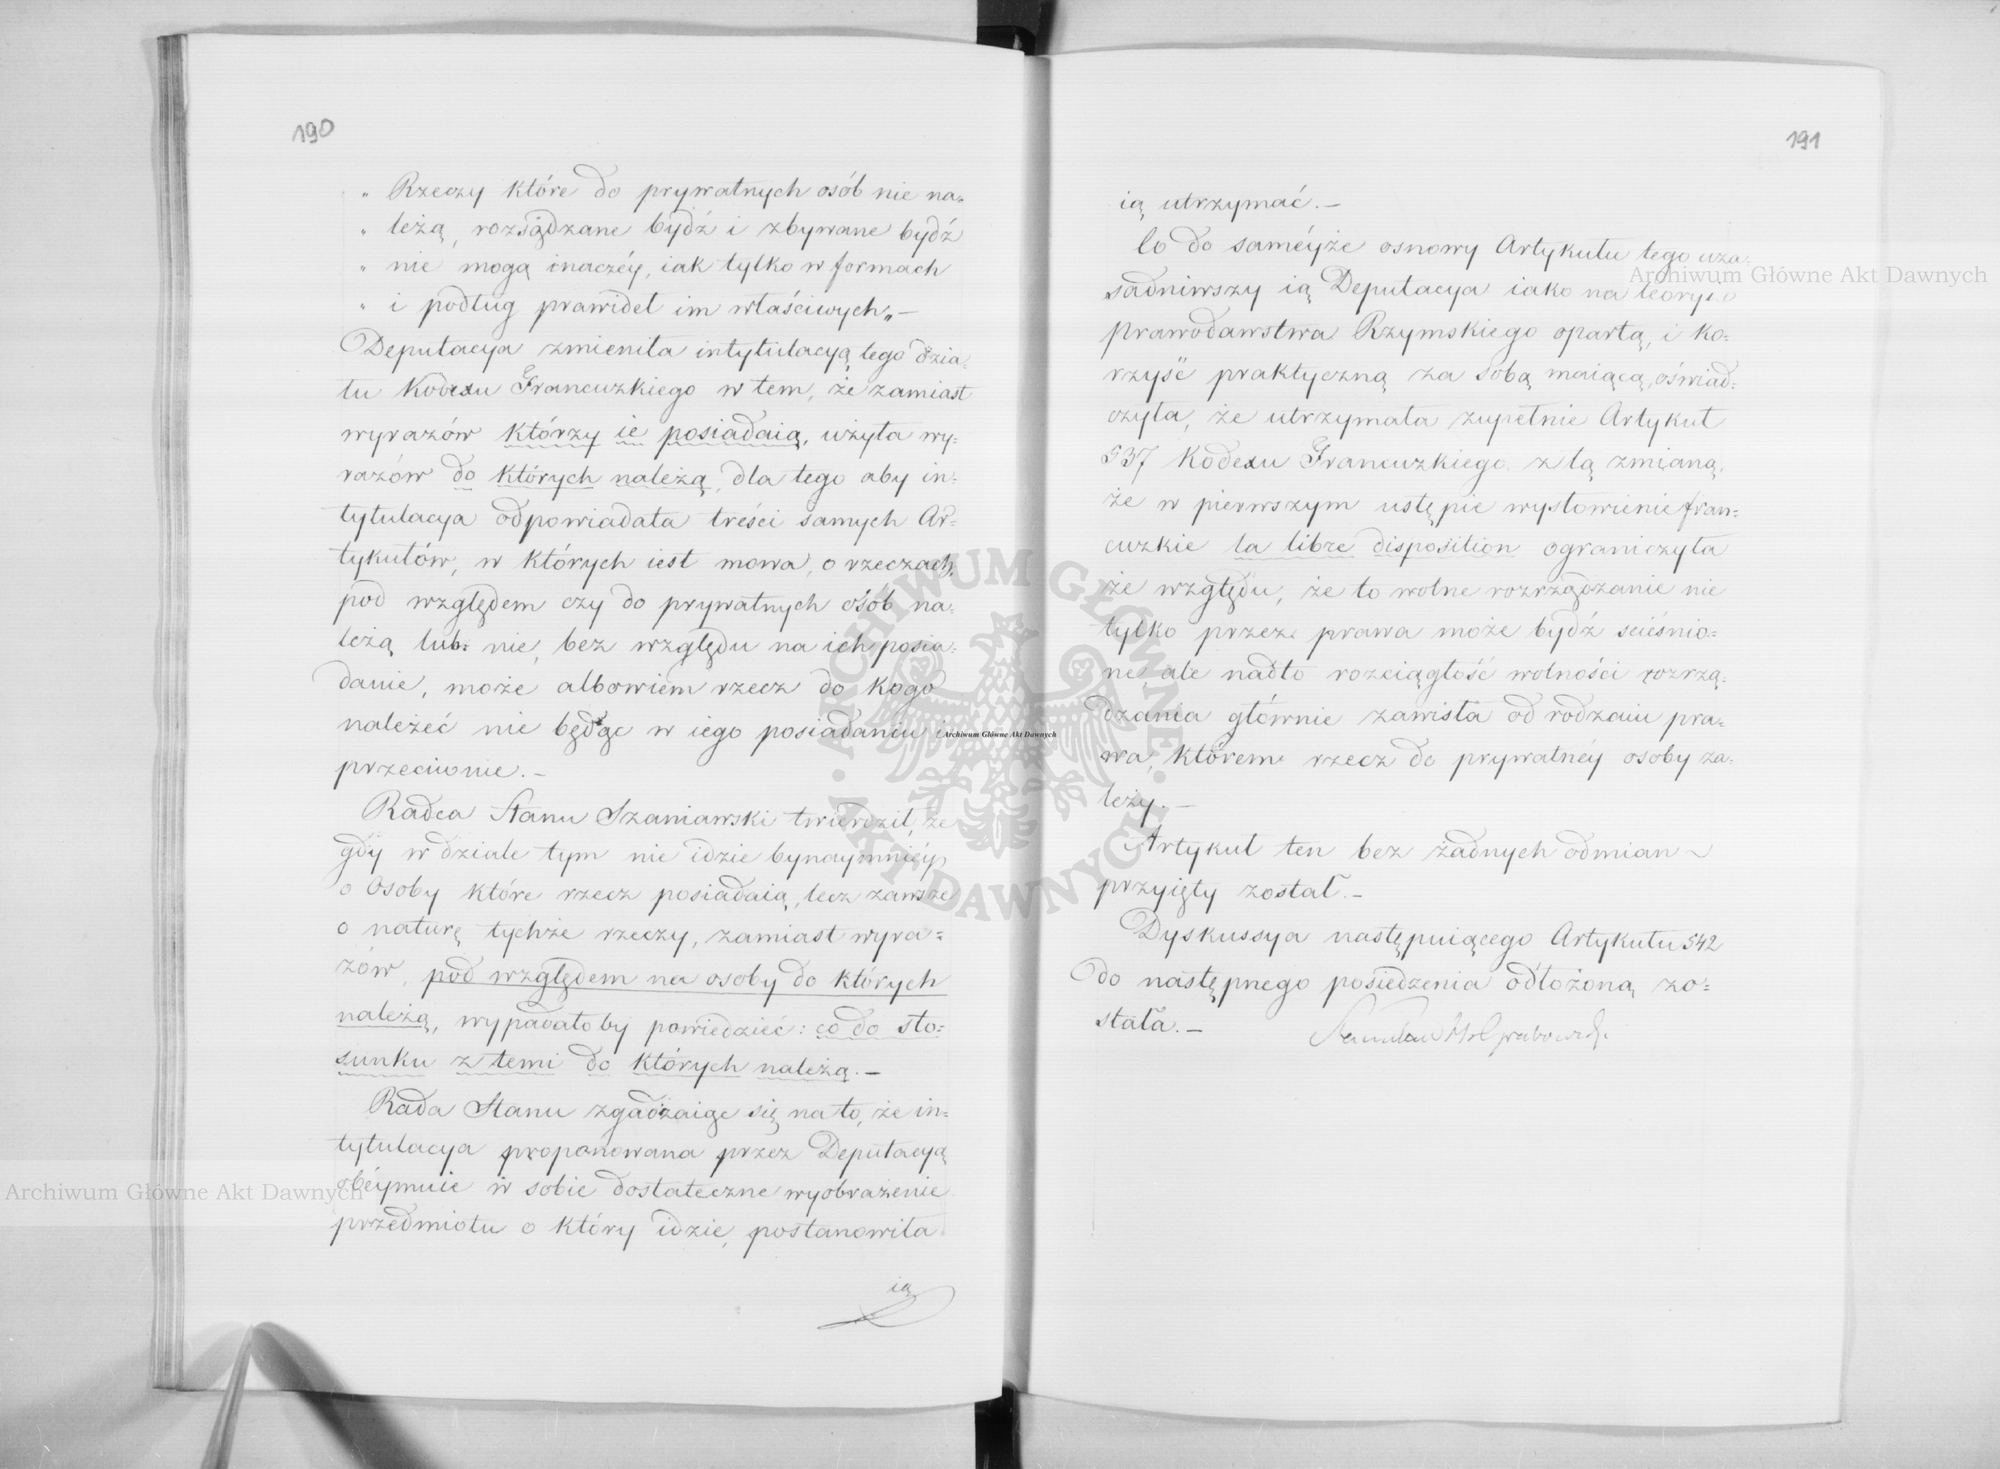 190
„ Rzeczy które do prywatnych osób nie na=
„ leżą, rozsądzane bydź i zbywane bydź
„ nie mogą inaczéy, iak tylko w formach
„ i podług prawideł im właściwych„ —
Deputacya zmieniła intytulacyą tego dzia=
łu Kodexu Francuzkiego w tem, że zamiast
wyrazów którzy ie posiadaią, użyła wy=
razów do których należą, dla tego aby in=
tytulacya odpowiadała treści samych Ar=
tykułów, w których iest mowa, o rzeczach,
pod względem czy do prywatnych osób na=
leżą lub nie, bez względu na ich posia=
danie, może albowiem rzecz do kogo
należeć nie będąc w iego posiadaniu i
przeciwnie. —
Radca Stanu Szaniawski twierdził, że
gdy w dziale tym nie idzie bynaymniéy
o Osoby które rzecz posiadaią, lecz zawsze
o naturę tychże rzeczy, zamiast wyra=
zów, pod względem na osoby do których
należą, wypadałoby powiedzieć: co do sto=
sunku z temi do których należą. —
Rada Stanu zgadzaiąc się na to, że in=
tytulacya proponowana przez Deputacyą
obéymuie w sobie dostateczne wyobrażenie
przedmiotu o który idzie, postanowiła
ią
191
ią utrzymać. —
Co do saméyże osnowy Artykułu tego uza=
sadniwszy ią Deputacya iako na teoryi
prawodawstwa Rzymskiego opartą, i ko=
rzyść praktyczną za sobą maiącą, oświad=
czyła, że utrzymała zupełnie Artykuł
537 Kodexu Francuzkiego z tą zmianą,
że w pierwszym ustępie wysłowienie fran=
cuzkie la libre disposition ograniczyła
ze względu, że to wolne rozrządzanie nie
tylko przez prawa może bydź scieśnio=
ne, ale nadto rozciągłość wolności rozrzą=
dzania głównie zawisła od rodzaiu pra=
wa, którem rzecz do prywatnéy osoby na=
leży. —
Artykuł ten bez żadnych odmian
przyięty został. —
Dyskussya następuiącego Artykułu 542
do następnego posiedzenia odłożoną zo=
stała. —
Stanisław Hr Grabowski
Archiwum Główne Akt Dawnych
Archiwum Główne Akt Dawnych
Archiwum Główne Akt Dawnych
ARCHIWUM GŁÓWNE AKT DAWNYCH